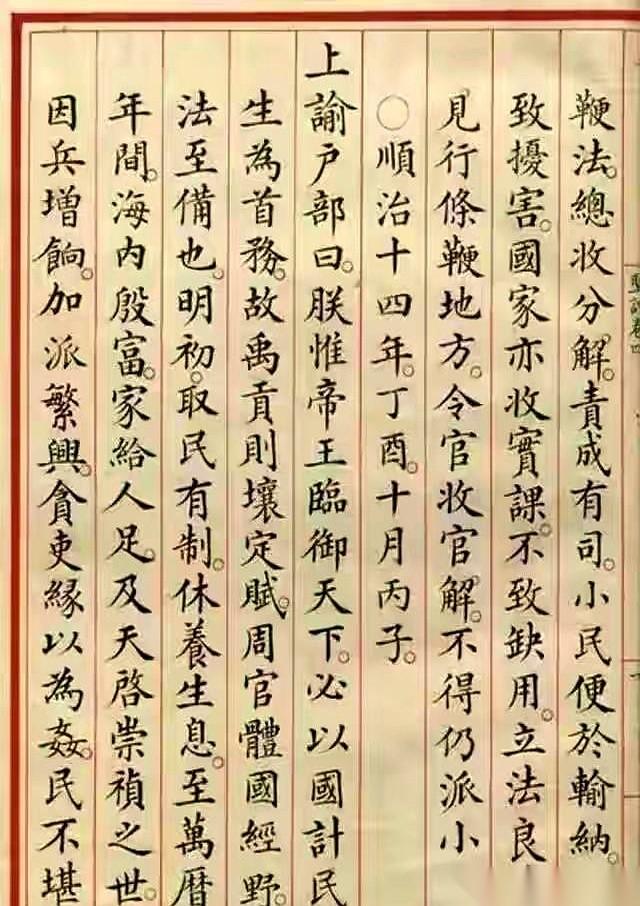 鞭法。總收分解。責成有司。小民便於輸納。
致擾害。國家亦收實課。不致缺用。立法良
見行條鞭地方。令官收官解。不得仍派小
○順治十四年。丁酉。十月丙子。
上諭戶部曰。朕惟帝王臨御天下。必以國計民
生為首務。故禹貢則壤定賦。周官體國經野。
法至備也。明初。取民有制。休養生息。至萬曆
年間。海內殷富。家給人足。及天啓崇禎之世。
因兵增餉。加派繁興。貪吏緣以為姦。民不堪